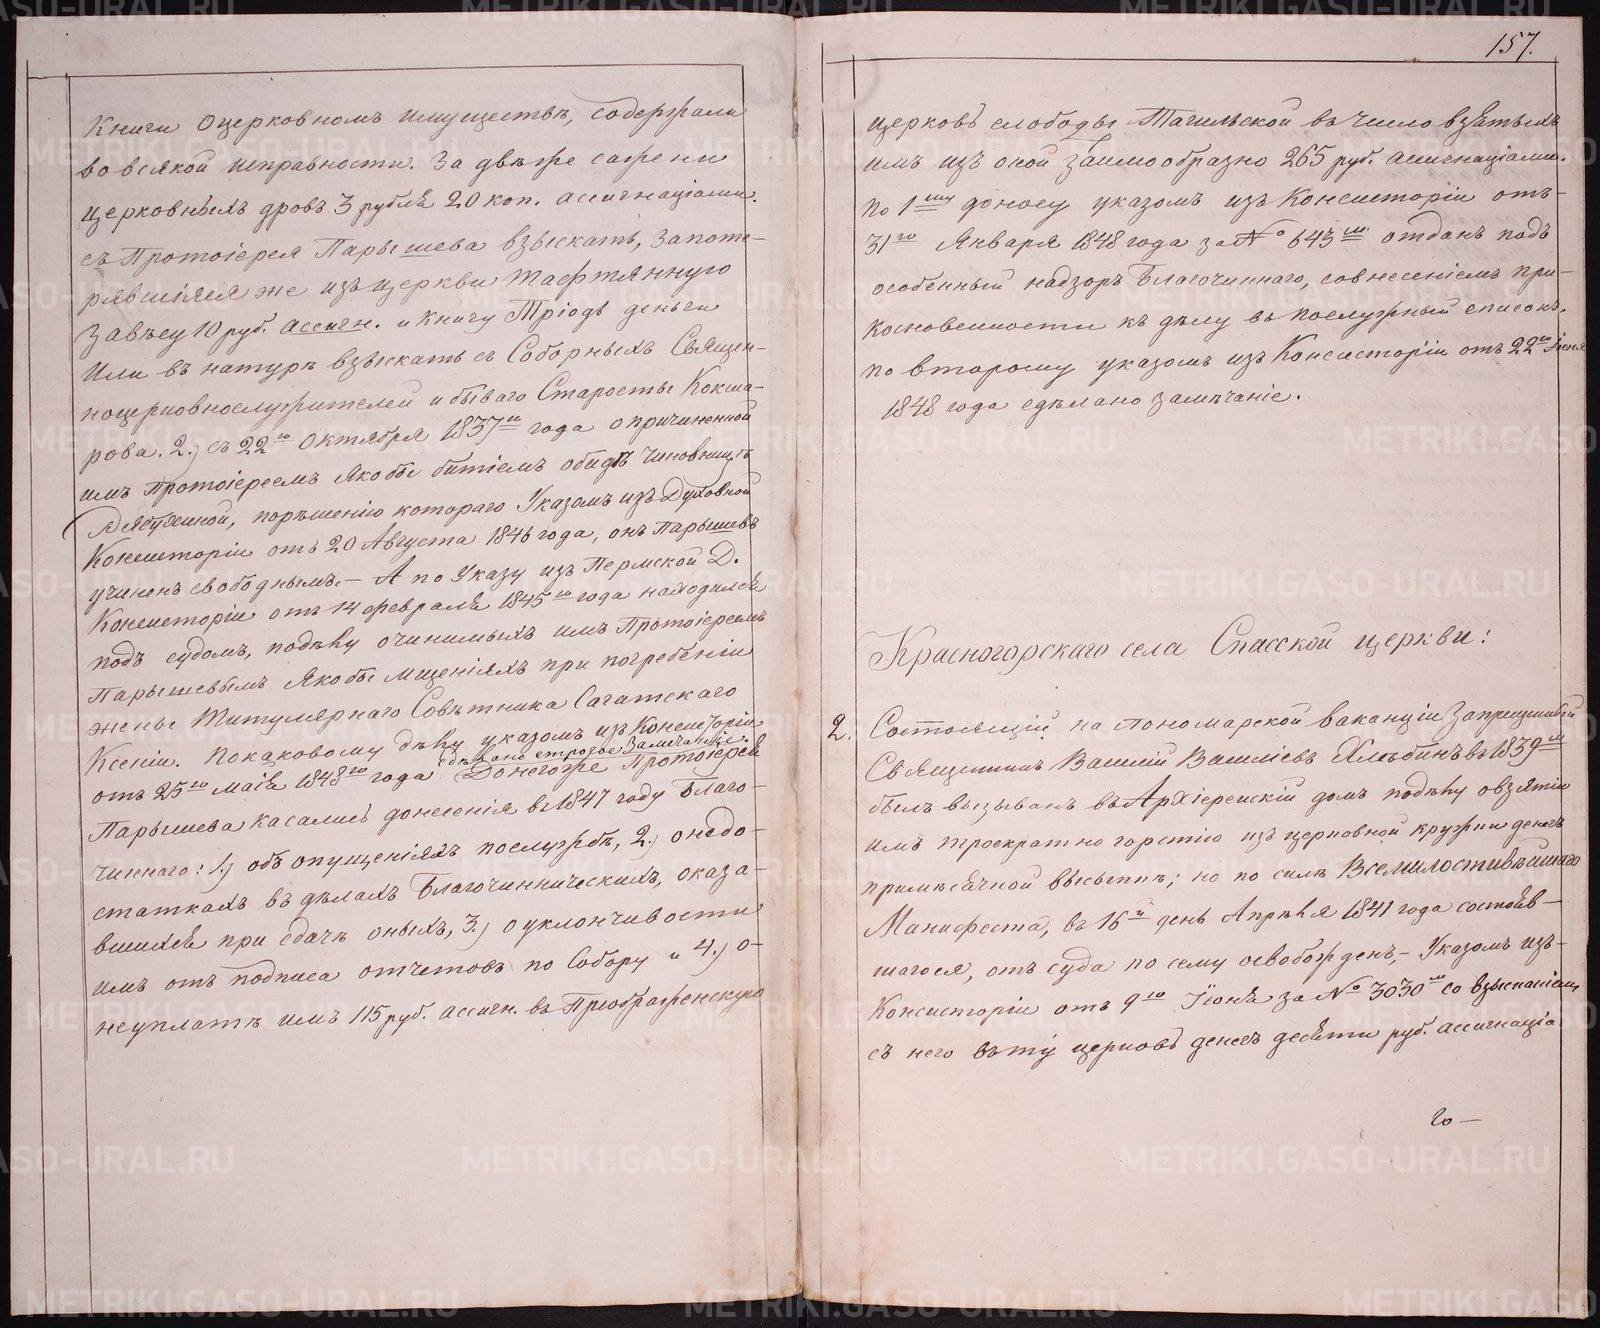 Книги оцерковномъ имуществѣ, содержали
во всякой исправности. За двѣ же сажени
церковныхъ дровъ 3 рубля 20 коп. ассигнаціями.
съ Протоіерея Парышева взыскать, запоте-
рявшіяся же изъ церкви тафтянную
завѣсу 10 руб. ассигн. и книгу Тріодь деньги
или въ натурѣ взыскать съ Соборныхъ Священ-
ноцерковнослужителей и бываго Старосты Кокша-
рова. 2.) съ 22го Октября 1837го года о причиненной
имъ Протоіереемъ якобы битіемъ обидѣ чиновницѣ
порѣшенію котораго Указомъ изъ Духовной
Консисторіи отъ 20 Августа 1846 года, онъ Парышевъ
учиненъ свободнымъ. – А по Указу изъ Пермской Д.
Консисторіи отъ 14 февраля 1845го года находился
подъ судомъ, подѣлу очинимыхъ имъ Протоіереемъ
Парышевымъ якобы мщеніяхъ при погребеніи
жены Титулярнаго Совѣтника Сагатскаго
Ксеніи. Покаковому дѣлу указомъ изъ Консисторіи
отъ 25го маія 1848го года сдѣлано строгое замѣчаніе. Доногоже Протоіерея
Парышева касались донесенія въ 1847 году Благо-
чиннаго: 1.) объ опущеніяхъ послужбѣ, 2.) онедо-
статкахъ въ дѣлахъ Благочинническихъ, оказа-
вшихся при сдачѣ оныхъ, 3.) о уклончивости
имъ отъ подписа отчетовъ по Собору и 4.) о-
неуплатѣ имъ 115 руб. ассигн. въ Преображенскую
157.
церковь слободы Тагильской въ число взятыхъ
имъ изъ оной заимообразно 265 руб. ассигнаціями.
По 1му доносу указомъ изъ Консисторіи отъ-
31го Января 1848 года за № 643м отданъ подъ
особенный надзоръ Благочиннаго, совнесеніемъ при-
косновенности къ дѣлу въ послужный списокъ.
По второму указомъ изъ Консисторіи отъ 22го Іюня
1848 года сдѣлано замѣчаніе.
Красногорскаго села Спасской церкви:
2. Состоящій на пономарской ваканціи Запрещенный
Священникъ Василій Васильевъ Хлѣбинъ въ 1839м
былъ вызыванъ въ Архіерейскій домъ подѣлу овзятіи
имъ троекратно горстію изъ церковной кружки денегъ
примѣсячной высыпкѣ; но по силѣ Всемилостивѣйшаго
Манифеста, въ 16й день Апрѣля 1841 года состояв-
шагося, отъ суда по сему освобожденъ, – Указомъ изъ-
Консисторіи отъ 9го Іюня за № 3030м со взысканіемъ
съ него въ ту церковь денегъ десяти руб. ассигнаціа
го –
METRIKI.GASO-URAL.RU